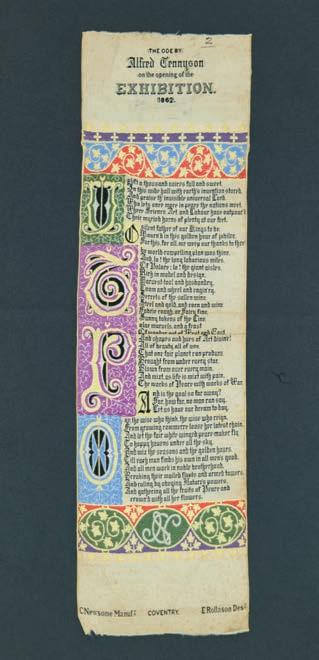 2
THE ODE BY
Alfred Tennyson
on the opening of the
EXHIBITION.
1862.
a thousand voices full and sweet,
In this wide hall with earth's invention stored,
And praise th' invisible universal Lord,
Who lets once more in peace the nations meet,
Where Science, Art, and Labour have outpour'd
Their myriad horns of plenty at our feet.
O silent father of our Kings to be
Mourn'd in this golden hour of jubilee,
For this, for all, we weep our thanks to thee
world-compelling plan was thine,
And lo! the long laborious miles
Of Palace; lo! the giant aisles,
Rich in model and design;
Harvest-tool and husbandry,
Loom and wheel and engin'ry,
Secrets of the sullen mine,
Steel and gold, and corn and wine
Fabric rough, or Fairy fine,
Sunny tokens of the Line,
Polar marvels, and a feast
Of wonder out of West and East,
And shapes and hues of Art divine!
All of beauty, all of use,
That one fair planet can produce,
Brought from under every star,
Blown from over every main,
And mixt, as life is mixt with pain,
The works of Peace with works of War.
And is the goal so far away?
Far, how far, no man can say,
Let us have our dream to-day.
O ye the wise who think, the wise who reign,
From growing commerce loose her latest chain,
And let the fair white-winged peace-maker fly
To happy havens under all the sky,
And mix the seasons and the golden hours,
Till each man finds his own in all men's good,
And all men work in noble brotherhood,
Breaking their mailed fleets and armed towers,
And ruling by obeying Nature's powers,
And gathering all the fruits of Peace and
crown'd with all her flowers.
C Newsome Manufr COVENTRY. E Rollason Des.